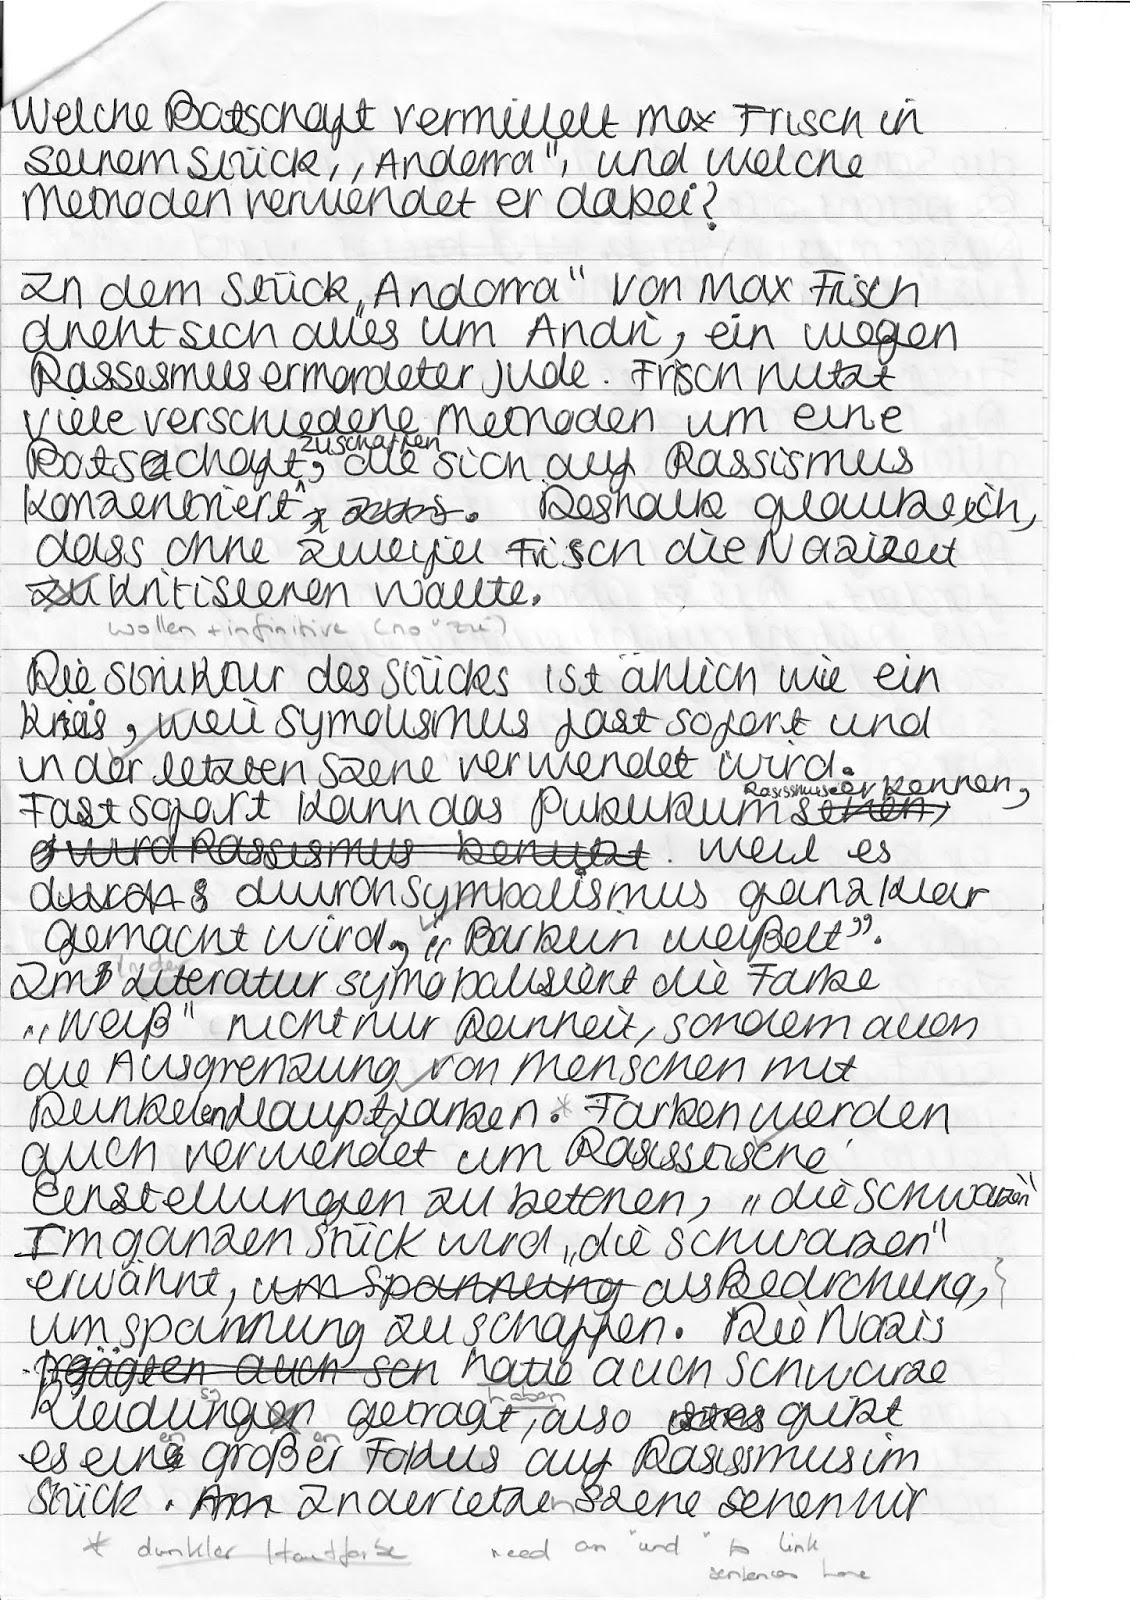 Welche Botschaft vermittelt Max Frisch in
seinem Stück „Andorra", und welche
Methoden verwendet er dabei?
In dem Stück „Andorra" von Max Frisch
dreht sich alles um Andri, ein wegen
Rassismus ermordeter Jude. Frisch nutzt
viele verschiedene Methoden um eine
zu schaffen
Botschaft, die sich auf Rassismus
konzentriert. Deshalb glaube ich,
dass ohne zweifel Frisch die Nazizeit
zu kritisieren wollte.
wollen + infinitive (no "zu")
Die Struktur des Stücks ist änlich wie ein
Kreis, weil Symbolismus fast sofort und
in der letzten Szene verwendet wird.
Rassismus erkennen,
Fast sofort kann das Publikum sehen,
wird Rassismus benutzt. weil es
durch Symbolismus ganz klar
gemacht wird, „Barblin weißelt".
In der
Literatur symbolisiert die Farbe
„Weiß" nicht nur Reinheit, sondern auch
die Ausgrenzung von Menschen mit
Dunkelen Hauptfarben. * Farben werden
auch verwendet um Rassistische
Einstellungen zu betonen, „die Schwarzen"
Im ganzen Stück wird „die Schwarzen"
erwähnt, um Spannung als Bedrohung,
um Spannung zu schaffen. Die Nazis
auch hatte auch schwarze
haben
Kleidungen getragt, also gibt
en en
es eine großer Fokus auf Rassismus im
Stück. In der letzten Szene sehen wir
* dunkler Hautfarbe need an "und" to link
sentences here